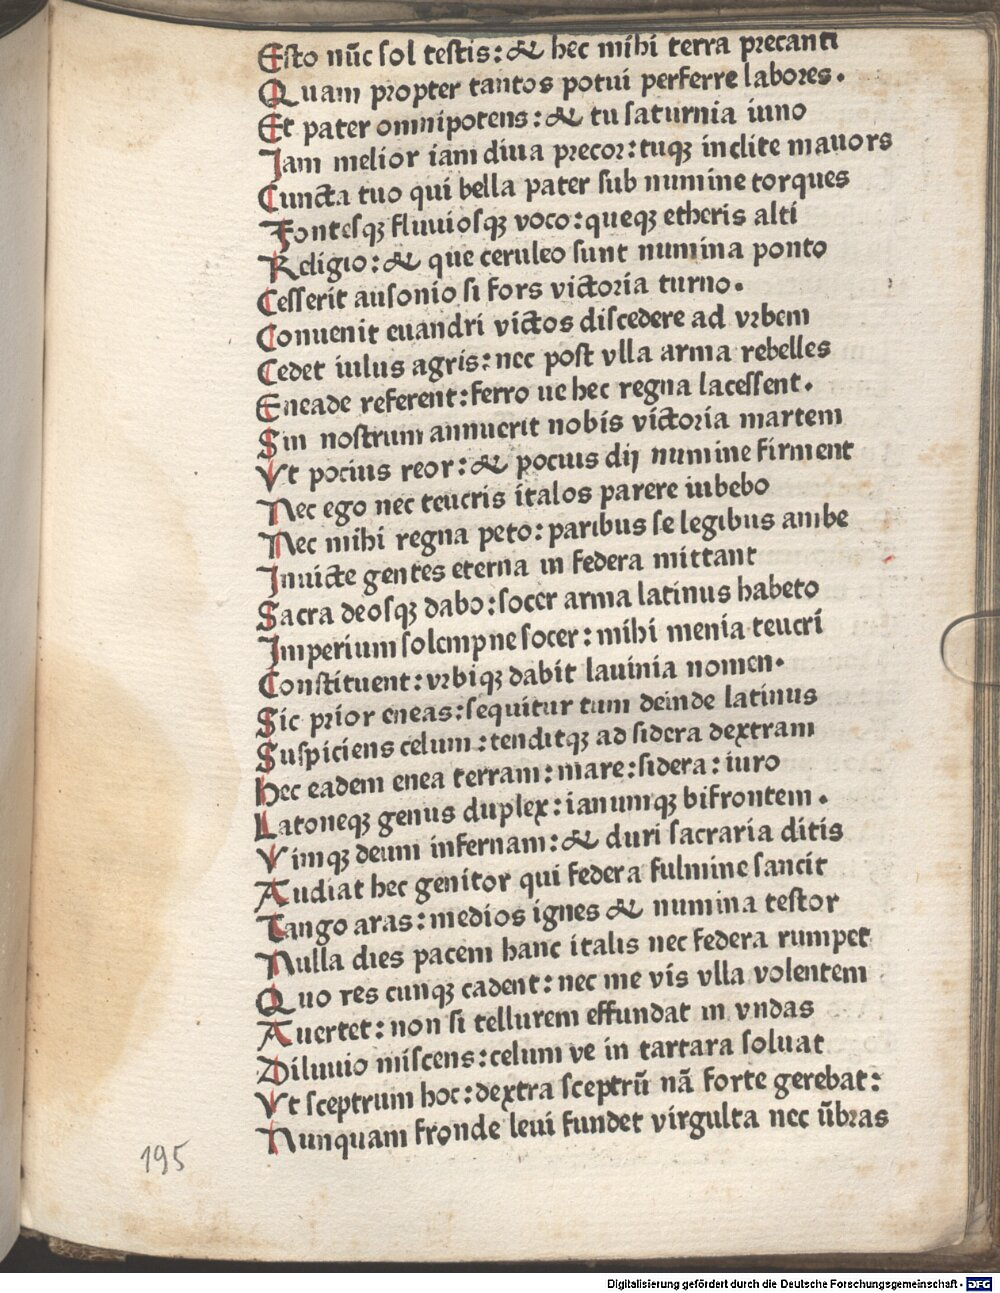 Esto nūc sol testis: & hec mihi terra precanti
Quam propter tantos potui perferre labores.
Et pater omnipotens: & tu saturnia iuno
Jam melior iam diua precor: tuqꝫ inclite mauors
Cuncta tuo qui bella pater sub numine torques
Fontesqꝫ fluuiosqꝫ voco: queqꝫ etheris alti
Religio: & que ceruleo sunt numina ponto
Cesserit ausonio si fors victoria turno.
Conuenit euandri victos discedere ad vrbem
Cedet iulus agris: nec post vlla arma rebelles
Eneade referent: ferro ue hec regna lacessent.
Sin nostrum annuerit nobis victoria martem
Vt pocius reor: & pocius dij numine firment
Nec ego nec teucris italos parere iubebo
Nec mihi regna peto: paribus se legibus ambe
Inuicte gentes eterna in federa mittant
Sacra deosqꝫ dabo: socer arma latinus habeto
Imperium solempne socer: mihi menia teucri
Constituent: vrbiqꝫ dabit lauinia nomen.
Sic prior eneas: sequitur tum deinde latinus
Suspiciens celum: tenditqꝫ ad sidera dextram
Hec eadem enea terram: mare: sidera: iuro
Latoneqꝫ genus duplex: ianumqꝫ bifrontem.
Vimqꝫ deum infernam: & duri sacraria ditis
Audiat hec genitor qui federa fulmine sancit
Tango aras: medios ignes & numina testor
Nulla dies pacem hanc italis nec federa rumpet
Quo res cunqꝫ cadent: nec me vis vlla volentem
Auertet: non si tellurem effundat in vndas
Diluuio miscens: celum ve in tartara soluat
Vt sceptrum hoc: dextra sceptrū nā forte gerebat:
Nunquam fronde leui fundet virgulta nec ūbras
195
Digitalisierung gefördert durch die Deutsche Forschungsgemeinschaft - DFG